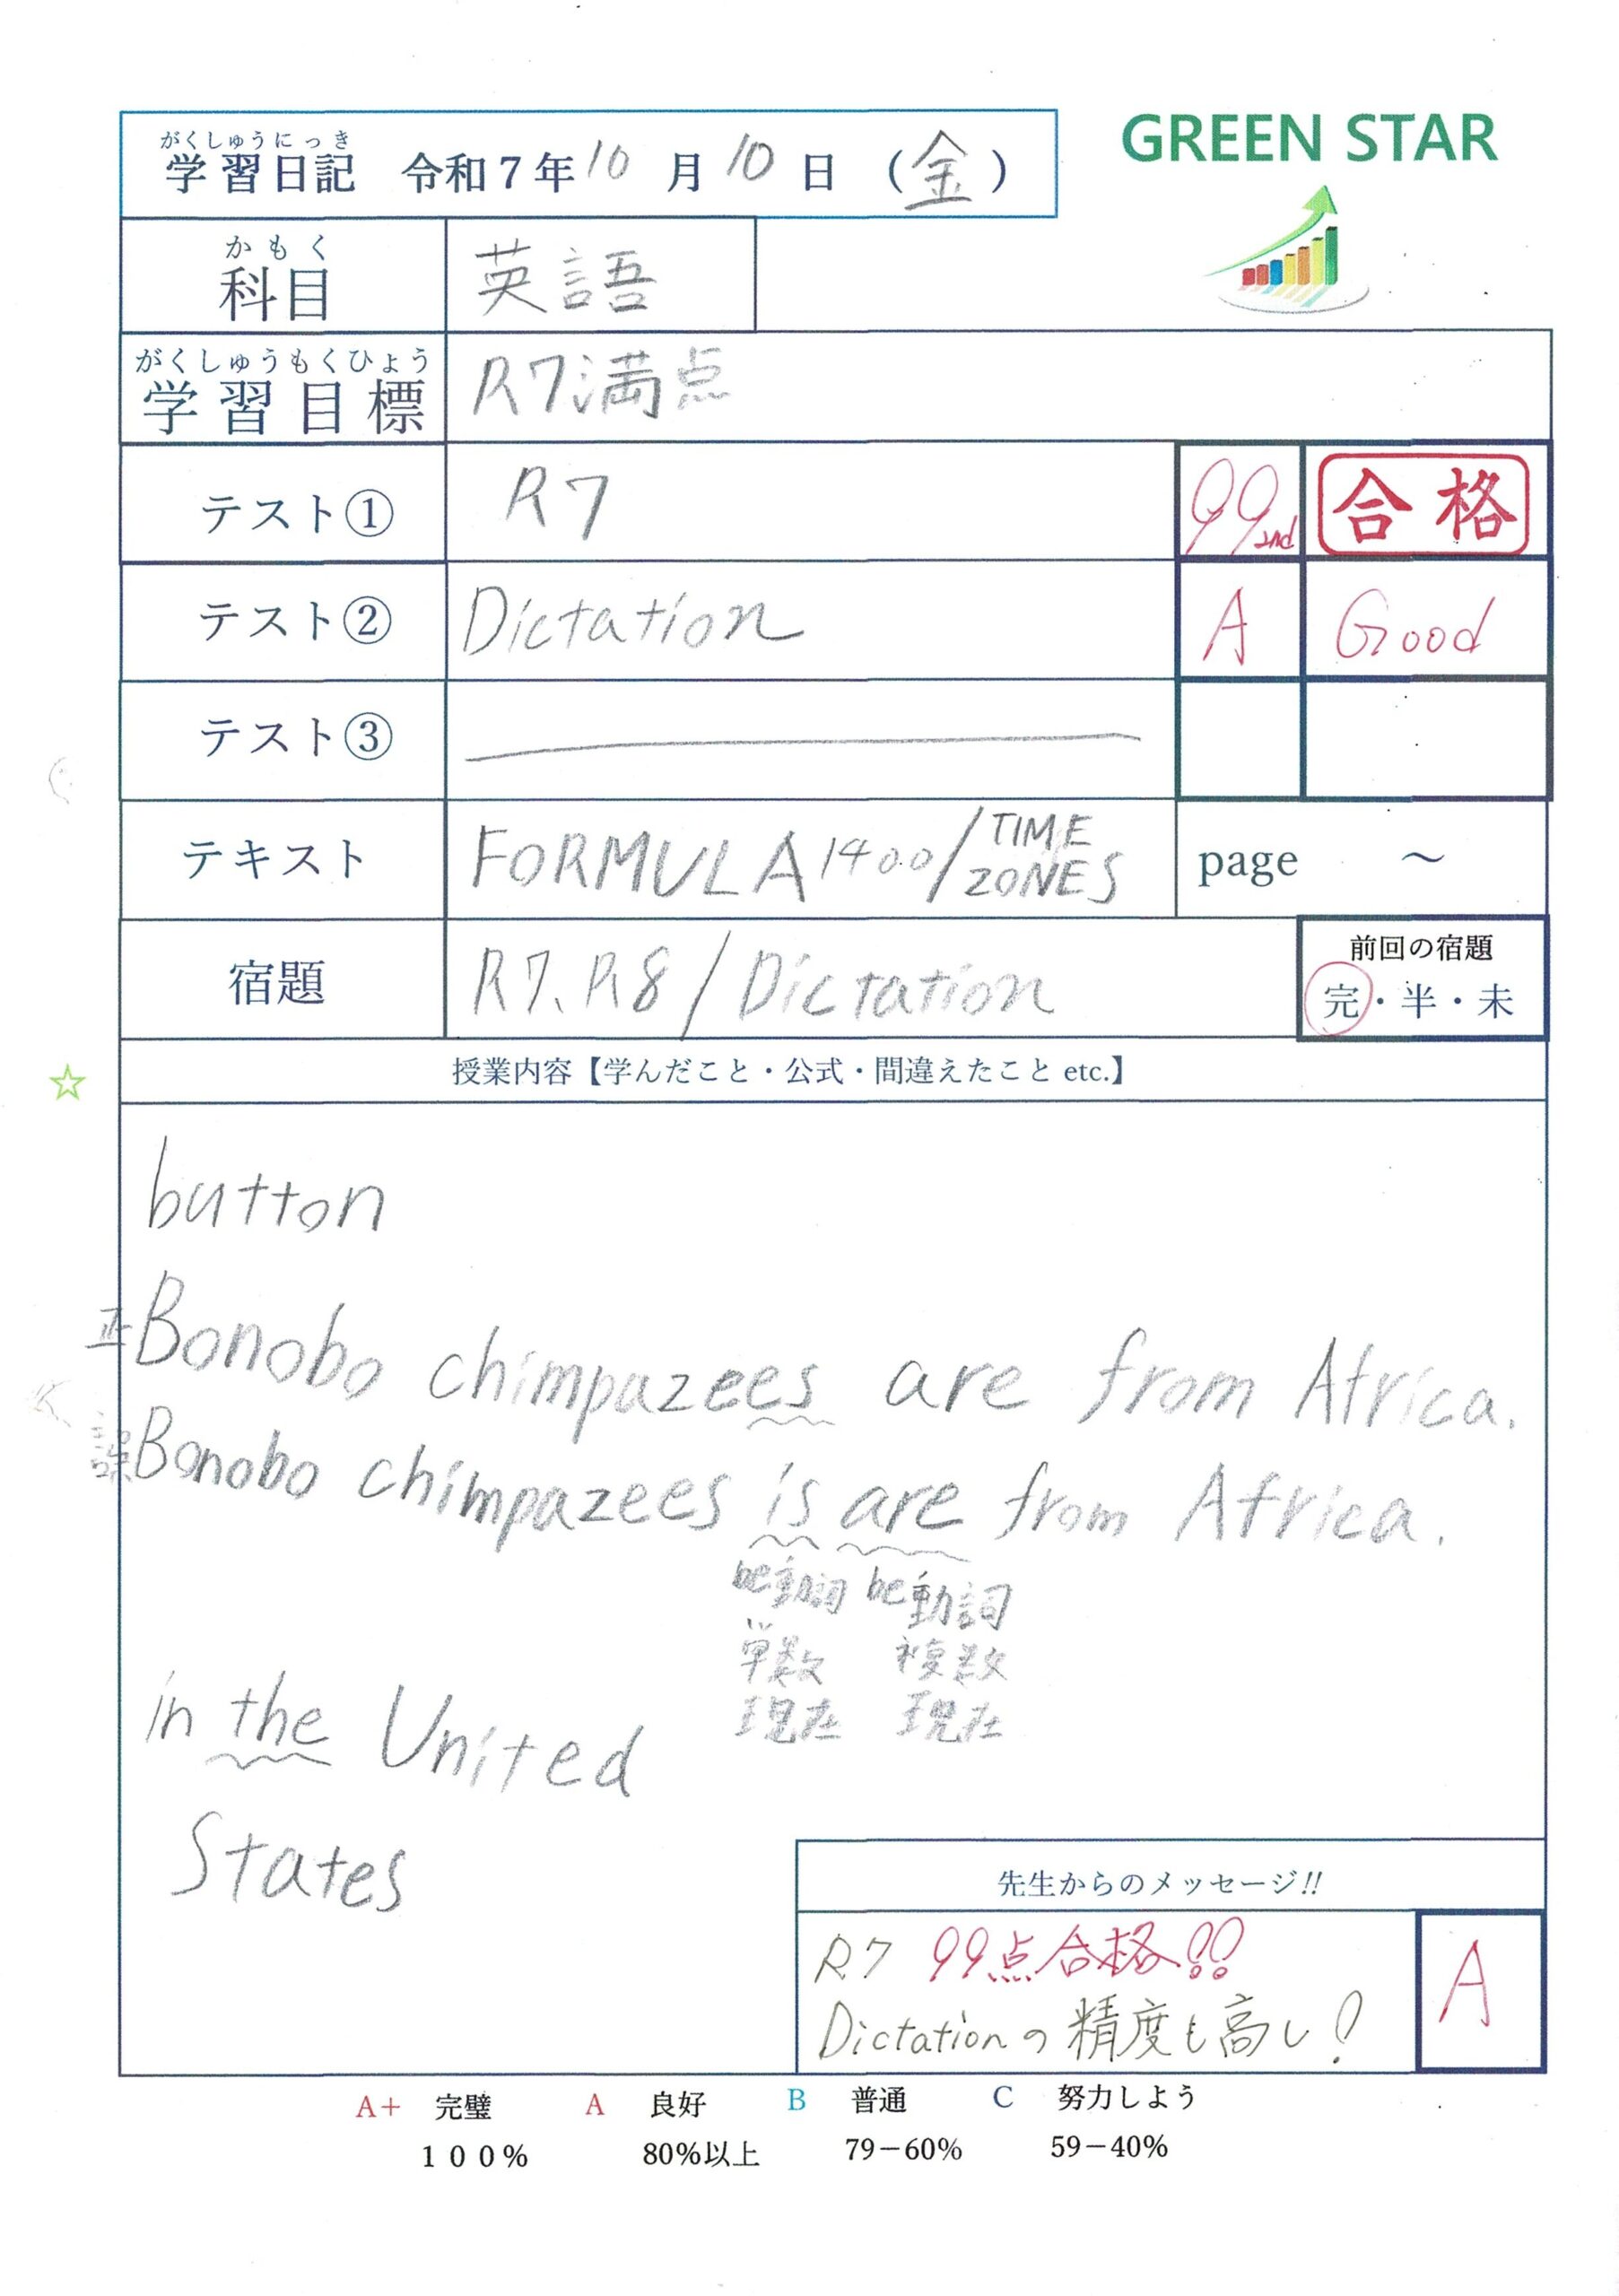 がくしゅうにっき
学習日記 令和7年10月10日(金)
GREEN STAR
かもく
科目 英語
がくしゅうもくひょう
学習目標 R7満点
テスト① R7 99 2nd 合格
テスト② Dictation A Good
テスト③
テキスト FORMULA 1400/TIME ZONES page ～
宿題 R7、R8/Dictation
前回の宿題
完・半・未
☆
授業内容【学んだこと・公式・間違えたこと etc.】
button
正 Bonobo chimpazees are from Africa.
誤 Bonobo chimpazees is are from Africa.
be動詞 be動詞
単数 複数
現在 現在
in the United
States
先生からのメッセージ!!
R7 99点合格!!
Dictationの精度も高し!
A
A+ 完璧 A 良好 B 普通 C 努力しよう
100% 80%以上 79-60% 59-40%